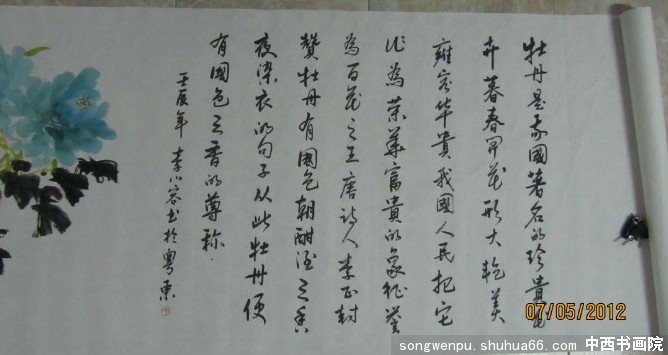 牡丹是我國著名的珍貴花
卉暮春開花形大艳美
雍容华貴我國人民把它
作為荣華富貴的象征誉
為百花之王唐诗人李正封
赞牡丹有國色朝酣酒天香
夜染衣的句子从此牡丹便
有國色天香的尊称.
壬辰年 李小容书於粤東
07/05/2012
songwenpu.shuhua66.com 中西书画院